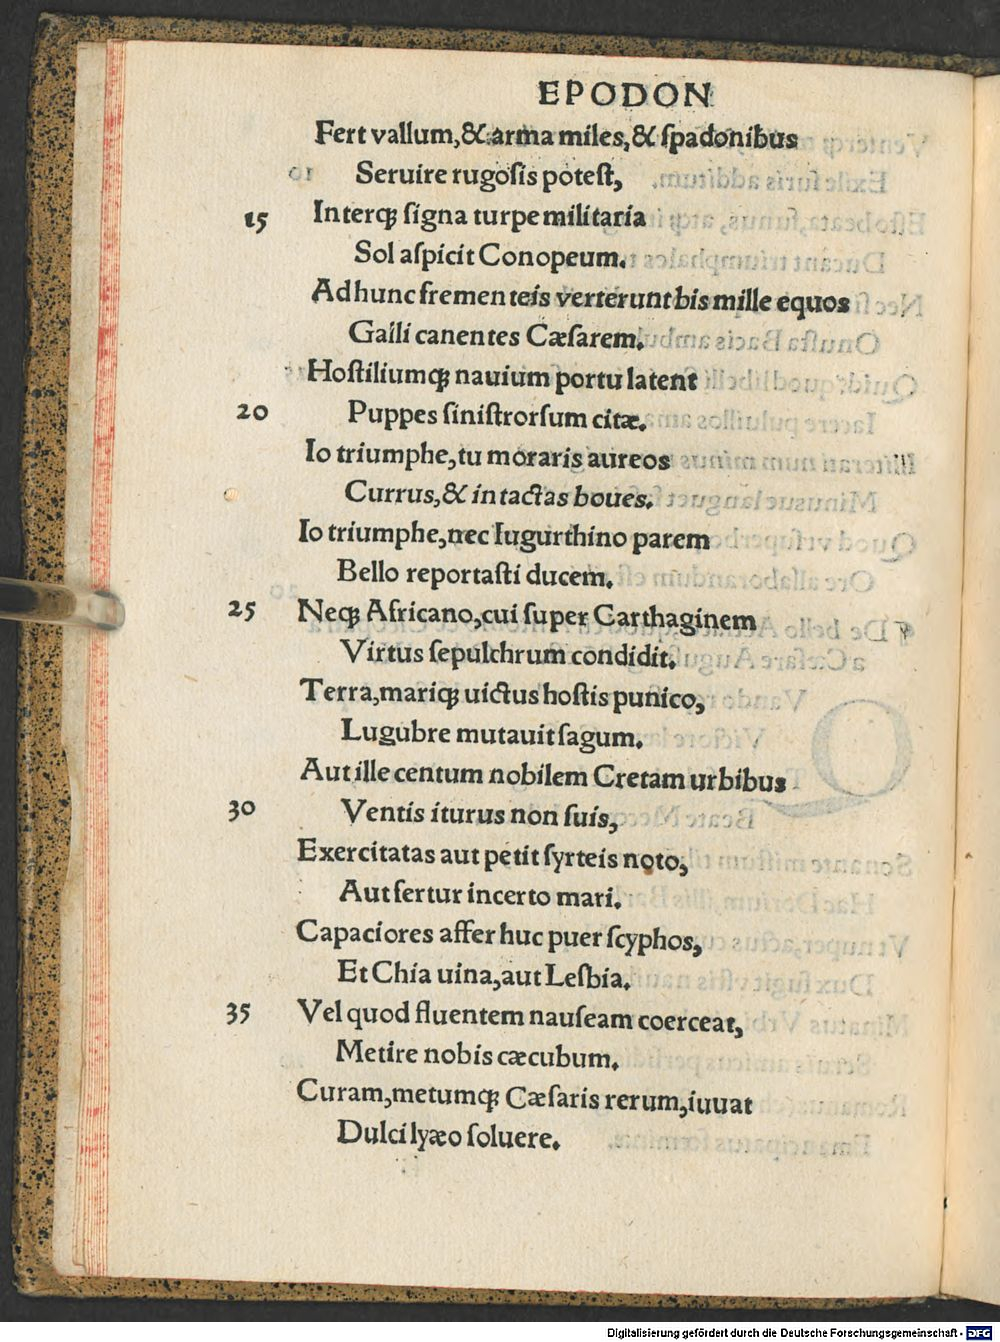 EPODON
Fert vallum,& arma miles,& ſpadonibus
Seruire rugoſis poteſt,
15 Interqꝫ ſigna turpe militaria
Sol aſpicit Conopeum.
Ad hunc frementeis verterunt bis mille equos
Galli canentes Cæſarem.
Hoſtiliumqꝫ nauium portu latent
20 Puppes ſiniſtrorſum citæ.
Io triumphe,tu moraris aureos
Currus,& intactas boues.
Io triumphe,nec Iugurthino parem
Bello reportaſti ducem.
25 Neqꝫ Africano,cui ſuper Carthaginem
Virtus ſepulchrum condidit.
Terra,mariqꝫ uictus hoſtis punico,
Lugubre mutauit ſagum.
Aut ille centum nobilem Cretam urbibus
30 Ventis iturus non ſuis,
Exercitatas aut petit ſyrteis noto,
Aut fertur incerto mari.
Capaciores affer huc puer ſcyphos,
Et Chia uina,aut Lesbia.
35 Vel quod fluentem nauſeam coerceat,
Metire nobis cæcubum.
Curam,metumqꝫ Cæſaris rerum,iuuat
Dulci lyæo ſoluere.
Digitalisierung gefördert durch die Deutsche Forschungsgemeinschaft - DFG